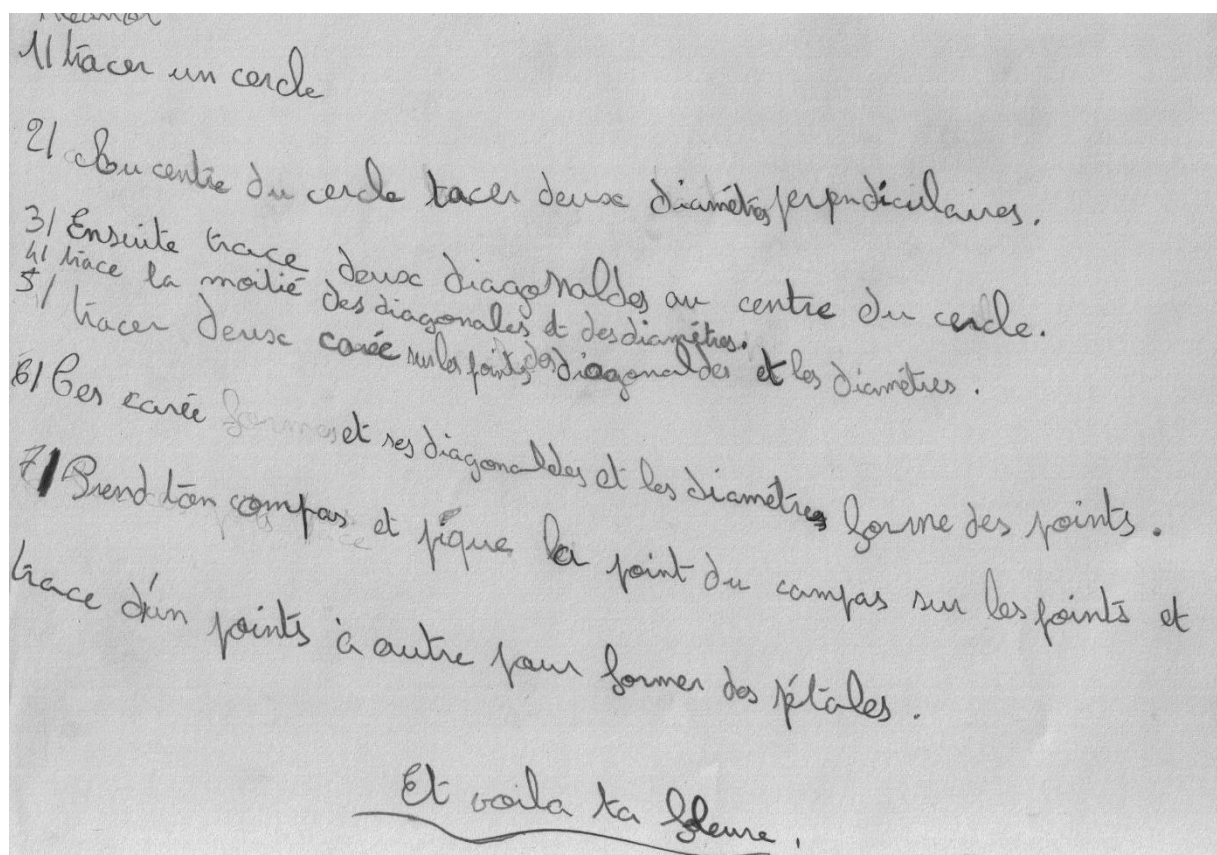 1/ tracer un cercle
2/ Au centre du cercle tacer deux diamétres perpndiculaires.
3/ Ensuite trace deux diagonaldes au centre du cercle.
4/ trace la moitié des diagonales et des diamétres.
5/ tracer deux carée sur les points des diagonaldes et les diamétres.
6/ Ces carée formes et ses diagonaldes et les diamétres forme des points.
7/ Prend ton compas et pique la point du compas sur les points et
trace d'un points à autre pour former des pétales.
Et voila ta fleure.